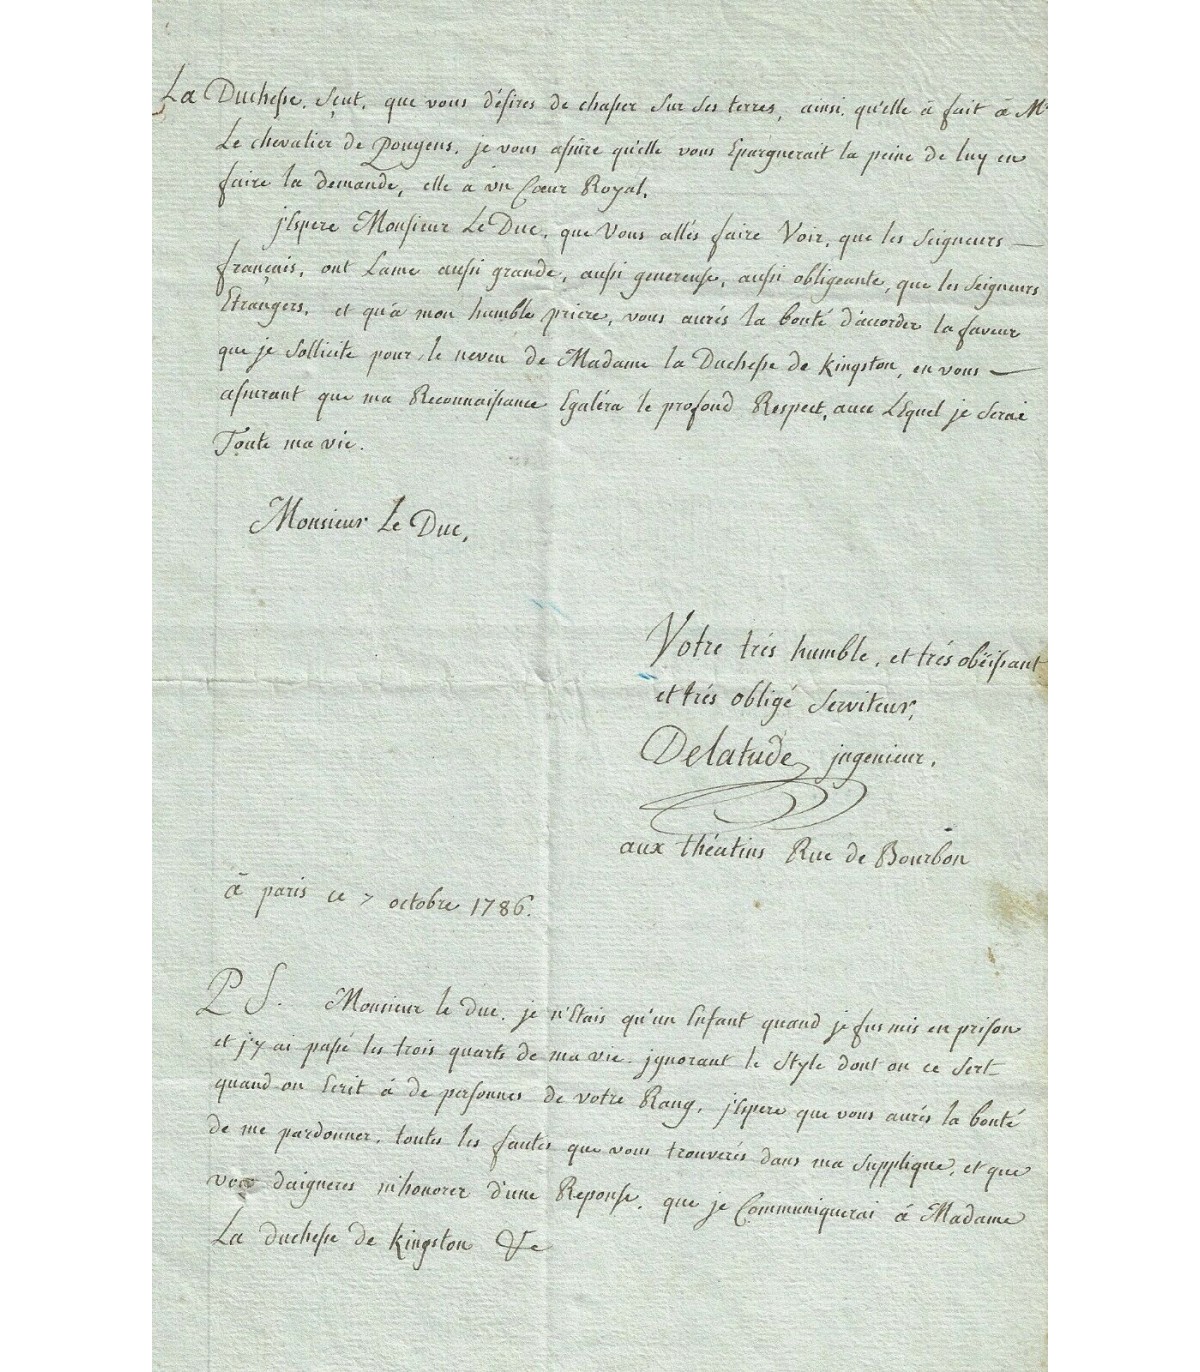 La Duchesse, sçut, que vous désires de chasser sur ses terres, ainsi, qu'elle â fait â Mr
Le chevalier de Pougens, je vous assûre qu'elle vous Epargnerait la peine de luy en
faire la demande, elle a un Cœur Royal,
j'Espere Monsieur Le Duc, que vous allés faire Voir, que les Seigneurs
français, ont Lame aussi grande, aussi genereuse, aussi obligeante, que les Seigneurs
Etrangers, et qu'à mon humble priere, vous aurés la bonté d'accorder la faveur
que je sollicite pour le neveu de Madame la Duchesse de Kingston, en vous
assurant que ma Reconnaissance Egaléra le profond Respect, avec LEquel je serai
Toute ma vie.
Monsieur Le Duc,
Votre trés humble, et trés obëissant
et trés obligé Serviteur,
Delatude jngenieur,
aux théatins Rue de Bourbon
â paris ce 7 octobre 1786.
PS. Monsieur le duc, je n'Etais qu'un Enfant quand je fus mis en prison
et j'y ai passé les trois quarts de ma vie, jgnorant le Style dont on ce sert
quand on Ecrit â de personnes de votre Rang, j'Espere que vous aurés la bonté
de me pardonner, toutes les fautes que vous trouverés dans ma Supplique, et que
vous daigneres m'honorer d'une Reponse, que je Communiquerai â Madame
La duchesse de Kingston &c